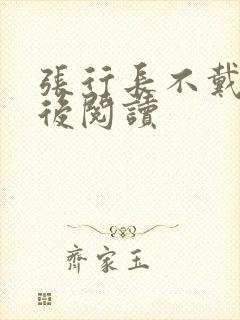 張行長不戴
後閱讀
齊家玉